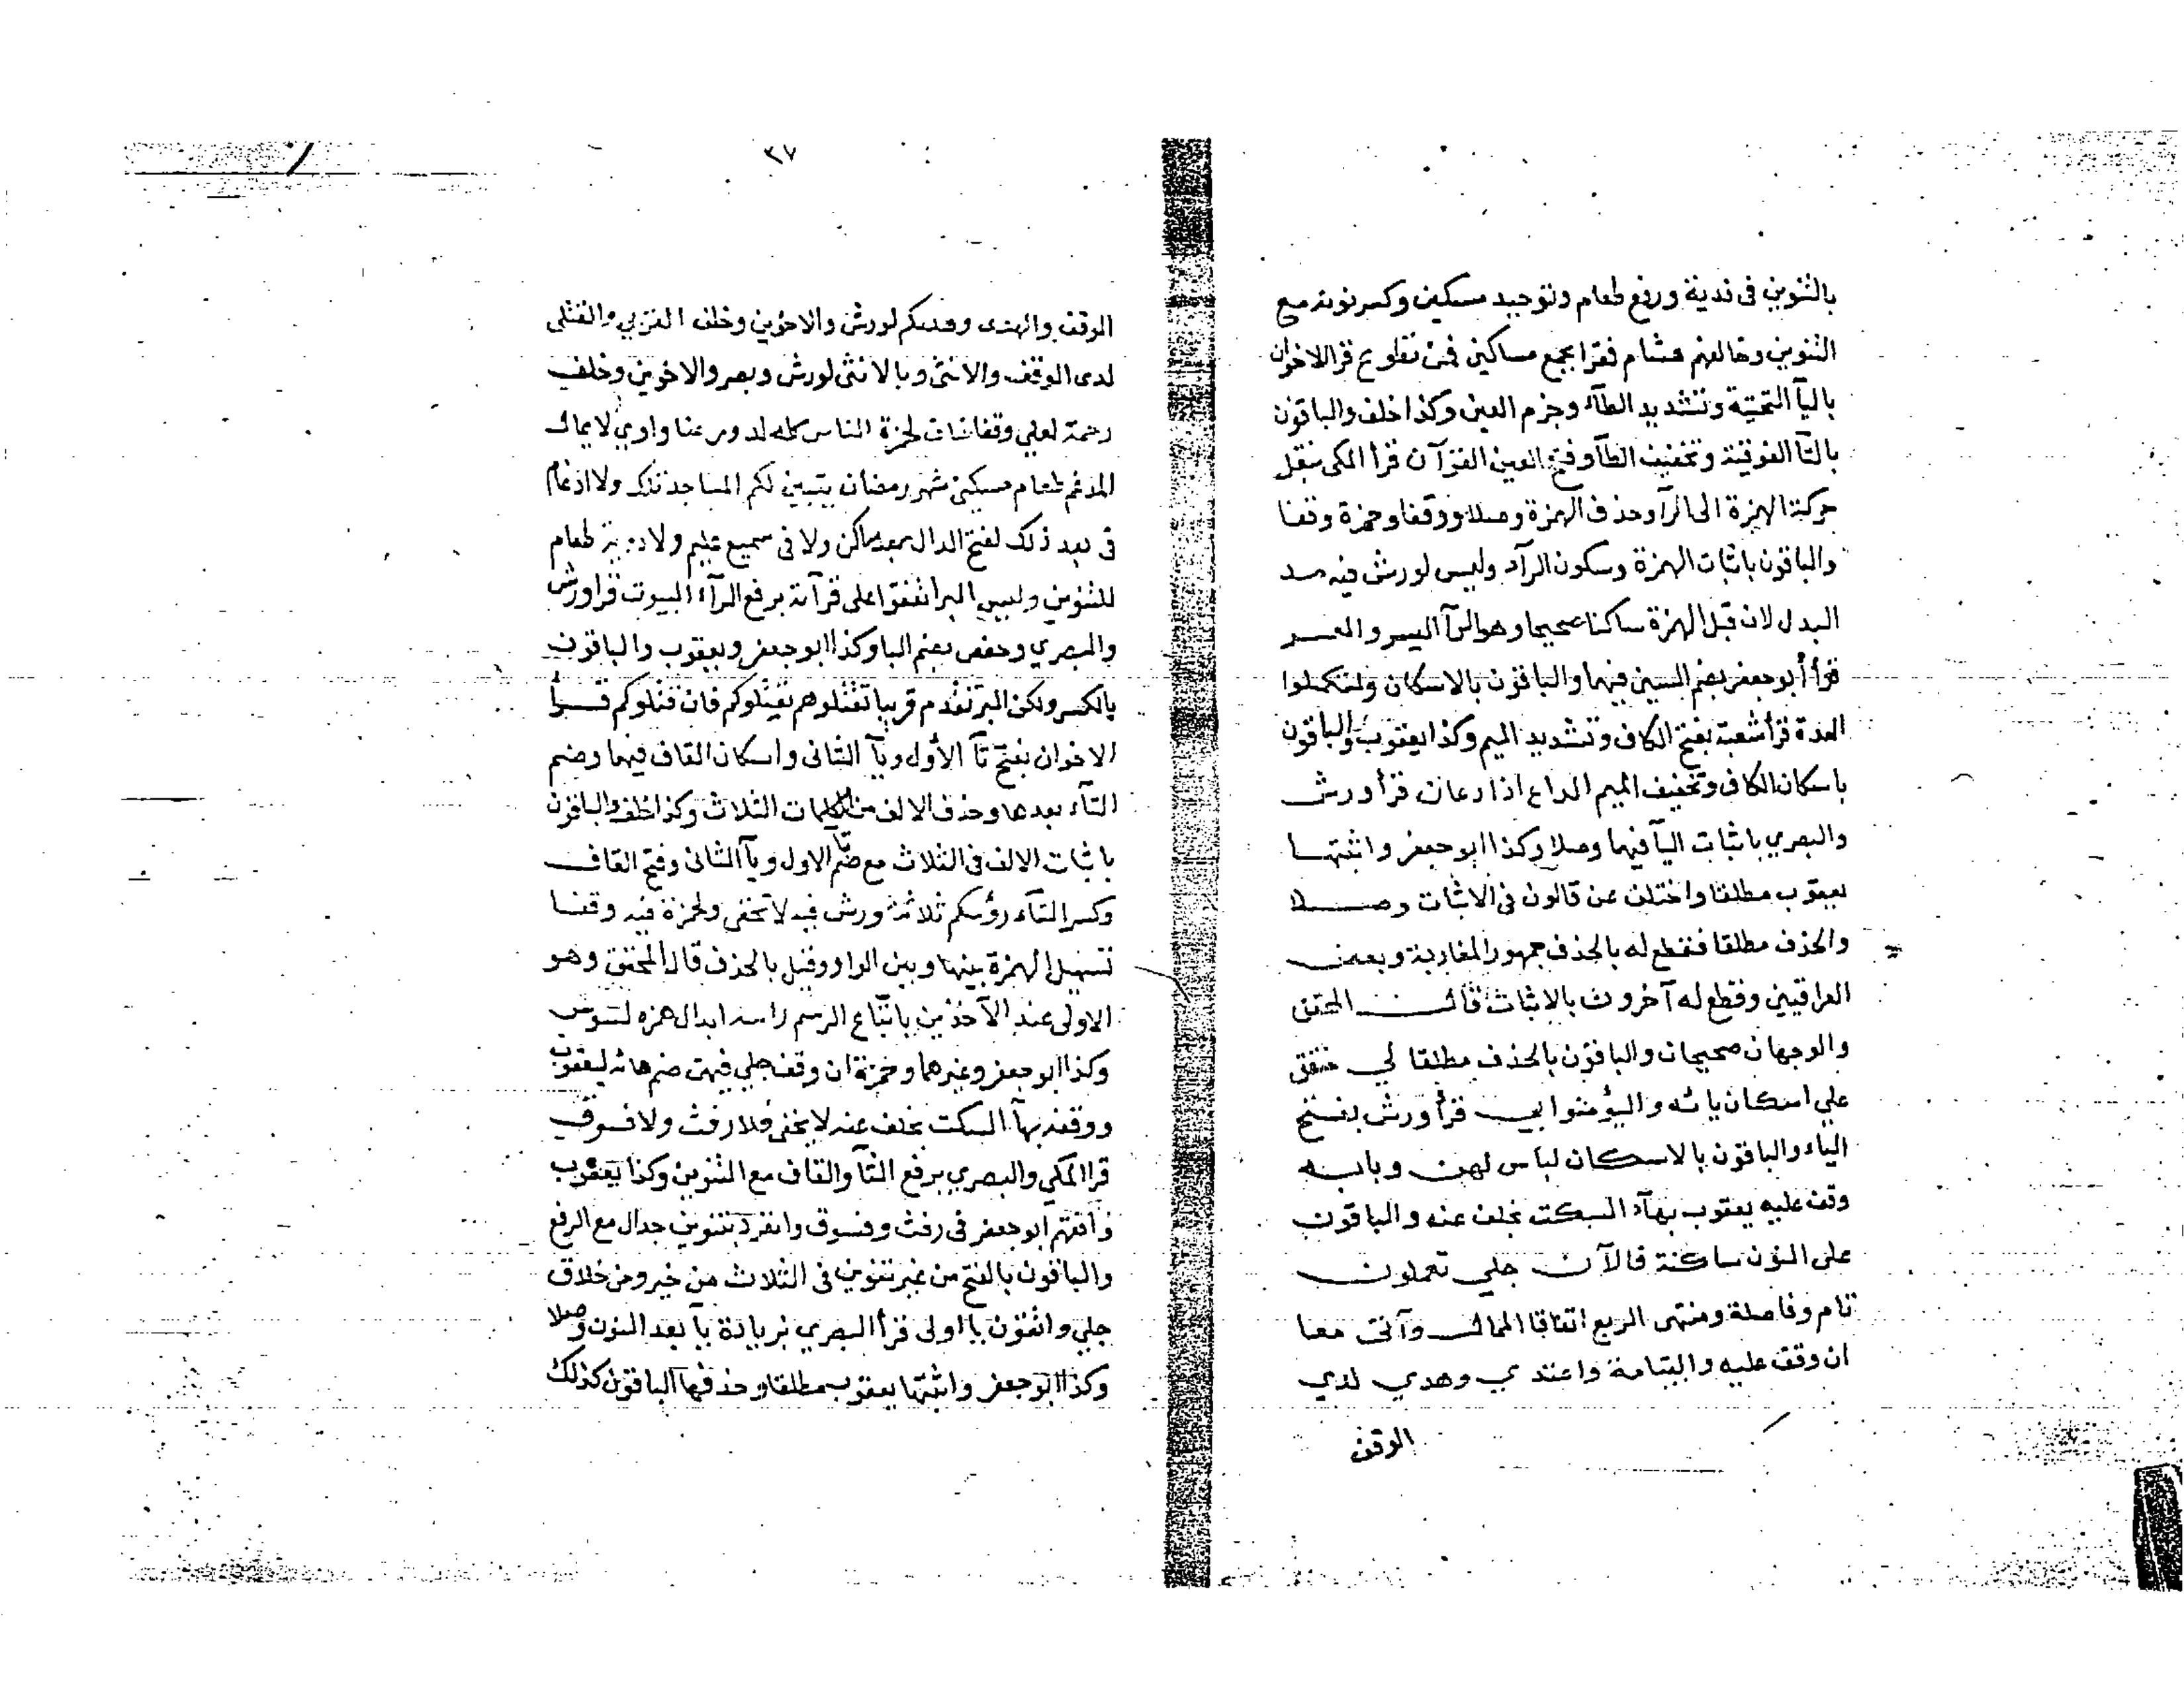 بالتنوين فى فدية ورفع طعام وتوحيد مسكين وكسر نونه مع
التنوين وخالفهم هشام فقرا بجمع مساكين فمن تطوع قرا الاخوان
باليآ التحتية وتشديد الطآء وجزم العين وكذا خلف والباقون
بالتآ الفوقية وتخفيف الطآ وفتح العين القرآن قرا المكى بنقل
حركة الهمزة الى الرآ وحذف الهمزة وصلا ووقفا وحمزة وقفا
والباقون باثبات الهمزة وسكون الرآء وليس لورش فيه مد
البدل لان قبل الهمزة ساكنا صحيحا وهو الرآ اليسر والعسر
قرأ أبو جعفر بضم السين فيهما والباقون بالاسكان ولتكملوا
العدة قرأ شعبة بفتح الكاف وتشديد الميم وكذا يعقوب والباقون
باسكان الكاف وتخفيف الميم الداع اذا دعان قرأ ورش
والبصري باثبات اليآ فيهما وصلا وكذا ابو جعفر واثبتها
يعقوب مطلقا واختلف عن قالون فى الاثبات وصلا
والحذف مطلقا فقطع له بالحذف جمهور المغاربة وبعض
العراقيين وقطع له آخرون بالاثبات قال المحقق
والوجهان صحيحان والباقون بالحذف مطلقا لي متفق
علي اسكان يائه واليؤمنوا بي قرأ ورش بفتح
الياء والباقون بالاسكان لباس لهن وبابه
وقف عليه يعقوب بهآء السكت بخلف عنه والباقون
على النون ساكنة فالآن جلي تعملون
تام وفاصلة ومنتهى الربع اتفاقا الممال وآتى معا
ان وقف عليه واليتامة واعتدي وهدي لدي
الوقف
٢٧
الوقف والهدى وهديكم لورش والاخوين وخلف القربي والقتلى
لدى الوقف والانثى وبالانثى لورش وبصر والاخوين وخلف
رحمة لعلي وقفا للناس كله لدور عنا واوي لا يمال
المدغم طعام مسكين شهر رمضان يتبين لكم المساجد تلك ولا ادغام
فى بعد ذلك لفتح الدال بعد ساكن ولا فى سميع عليم ولا فدية طعام
للتنوين وليس البر اتفقوا على قرآته برفع الرآء البيوت قرا ورش
والبصري وحفص بضم البا وكذا ابو جعفر ويعقوب والباقون
بالكسر ولكن البر تقدم قريبا تقتلوهم يقتلوكم فان قتلوكم قرأ
الاخوان بفتح تآ الأول ويآ الثانى واسكان القاف فيهما وضم
التآء بعدها وحذف الالف من الكلمات الثلاث وكذا خلف والباقون
باثبات الالف فى الثلاث مع ضم تآ الاول ويآ الثانى وفتح القاف
وكسر التآء رؤسكم ثلاثة ورش فيه لا تخفى ولحمزة فيه وقفا
تسهيل الهمزة بينها وبين الواو وقيل بالحذف قال المحقق وهو
الاولى عند الآخذين باتباع الرسم راسه ابدال همزه لسوسى
وكذا ابو جعفر وغيرهما وحمزة ان وقف جلي فيهن ضم هائه ليعقوب
ووقفه بهآ السكت بخلف عنه لا يخفى فلا رفث ولا فسوق
قرا المكي والبصري برفع الثآ والقاف مع التنوين وكذا يعقوب
وافقهم ابو جعفر فى رفث وفسوق وانفرد بتنوين جدال مع الرفع
والباقون بالفتح من غير تنوين فى الثلاث من خير ومن خلاق
جلي واتقون يا اولى قرأ البصري بزيادة يآ بعد النون وصلا
وكذا ابو جعفر واثبتها يعقوب مطلقا وحذفها الباقون كذلك